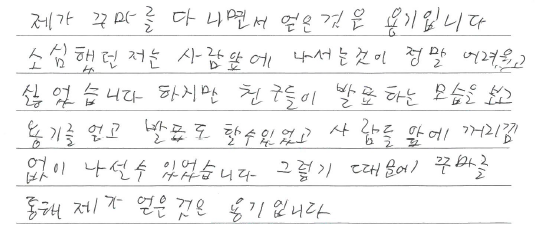 제가 꾸마를 다니면서 얻은 것은 용기입니다
소심했던 저는 사람앞에 나서는것이 정말 어려웠고
싫었습니다 하지만 친구들이 발표하는 모습을 보고
용기를 얻고 발표도 할수있었고 사람들 앞에 거리낌
없이 나설수 있었습니다 그렇기 때문에 꾸마를
통해 제가 얻은것은 용기입니다